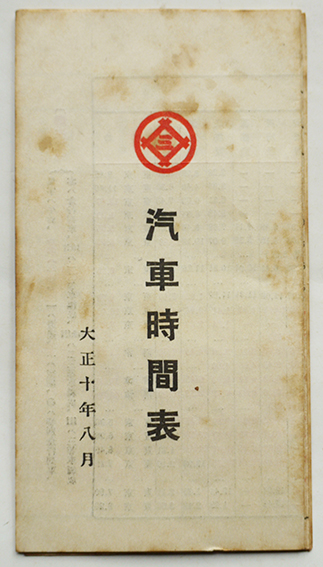 三
汽車時間表
大正十年八月